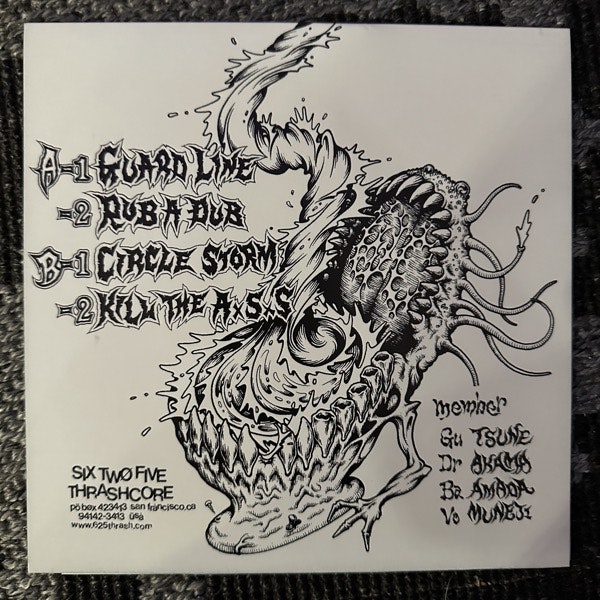 A-1 GUARD LINE
-2 RUB A DUB
B-1 CIRCLE STORM
-2 KILL THE A×S×S
member
Gu TSUNE
Dr AKAMA
Ba AMADA
Vo MUNEJI
SIX TWØ FIVE
THRASHCORE
pö box 423413 san francisco,ca
94142-3413 üsa
www.625thrash.com